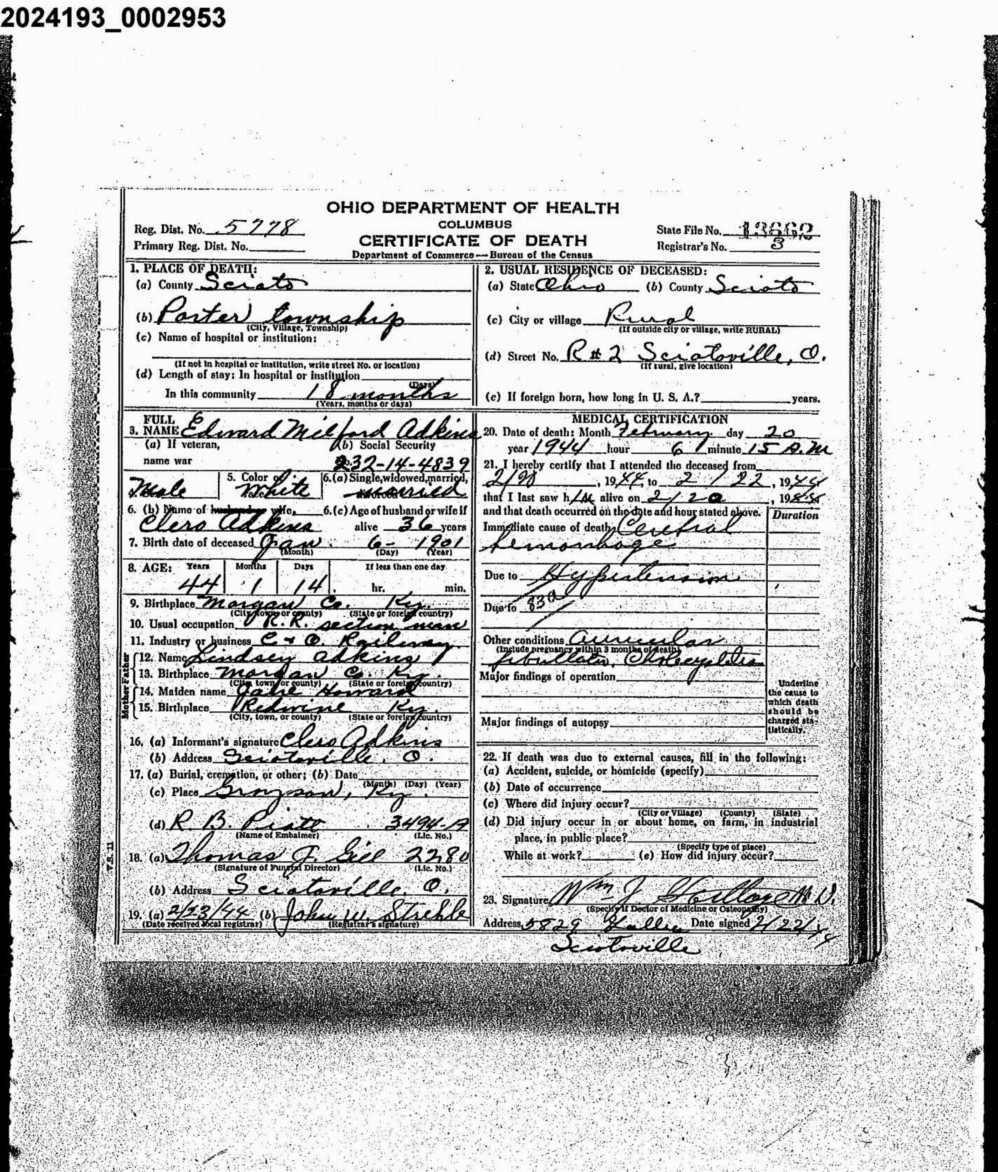 2024193_0002953
OHIO DEPARTMENT OF HEALTH
COLUMBUS
CERTIFICATE OF DEATH
Department of Commerce—Bureau of the Census
Reg. Dist. No. 5778
Primary Reg. Dist. No.
State File No. 13662
Registrar's No. 3
1. PLACE OF DEATH:
(a) County Scioto
(b) Porter township
(City, Village, Township)
(c) Name of hospital or institution:
(If not in hospital or institution, write street No. or location)
(d) Length of stay: In hospital or institution
(Days)
In this community 18 months
(Years, months or days)
2. USUAL RESIDENCE OF DECEASED:
(a) State Ohio (b) County Scioto
(c) City or village Rural
(If outside city or village, write RURAL)
(d) Street No. R#2 Sciotoville, O.
(If rural, give location)
(e) If foreign born, how long in U. S. A.? years.
3. FULL NAME Edward Milford Adkins
(a) If veteran, name war
(b) Social Security
232-14-4839
Male
5. Color or
White
6.(a) Single, widowed, married,
married
6. (b) Name of husband or wife
Clero Adkins
6.(c) Age of husband or wife if
alive 36 years
7. Birth date of deceased Jan. 6- 1901
(Month) (Day) (Year)
8. AGE: Years Months Days If less than one day
44 1 14 hr. min.
9. Birthplace Morgan Co. Ky.
(City, town or county) (State or foreign country)
10. Usual occupation R.R. section man
11. Industry or business C & O. Railway
Mother Father
12. Name Lindsey Adkins
13. Birthplace Morgan Co. Ky.
(City, town or county) (State or foreign country)
14. Maiden name Jane Howard
15. Birthplace Redwine Ky.
(City, town, or county) (State or foreign country)
16. (a) Informant's signature Clero Adkins
(b) Address Sciotoville, O.
17. (a) Burial, cremation, or other; (b) Date
(Month) (Day) (Year)
(c) Place Grayson, Ky
(d) R. B. 3494-A
(Name of Embalmer) (Lic. No.)
18. (a) Thomas J. Gill 2280
(Signature of Funeral Director) (Lic. No.)
(b) Address Sciotoville, O.
19. (a) 2/23/44 (b) John W. Strehle
(Date received local registrar) (Registrar's signature)
V.S. 11
MEDICAL CERTIFICATION
20. Date of death: Month February day 20
year 1944 hour 6 minute 15 A.M
21. I hereby certify that I attended the deceased from
2/20, 1944 to 2/22, 1944
that I last saw him alive on 2/20, 19
and that death occurred on the date and hour stated above.
Duration
Immediate cause of death Cerebral
hemorrhage
Due to Hypertension
Due to 83a
Other conditions Auricular
(Include pregnancy within 3 months of death)
fibrillation, Cholecystitis
Major findings of operation
Underline
the cause to
which death
should be
charged sta-
tistically.
Major findings of autopsy
22. If death was due to external causes, fill in the following:
(a) Accident, suicide, or homicide (specify)
(b) Date of occurrence
(c) Where did injury occur?
(City or Village) (County) (State)
(d) Did injury occur in or about home, on farm, in industrial
place, in public place?
(Specify type of place)
While at work? (e) How did injury occur?
23. Signature Wm J M.D.
(Specify if Doctor of Medicine or Osteopathy)
Address 5829 Gallia Date signed 2/22/44
Sciotoville